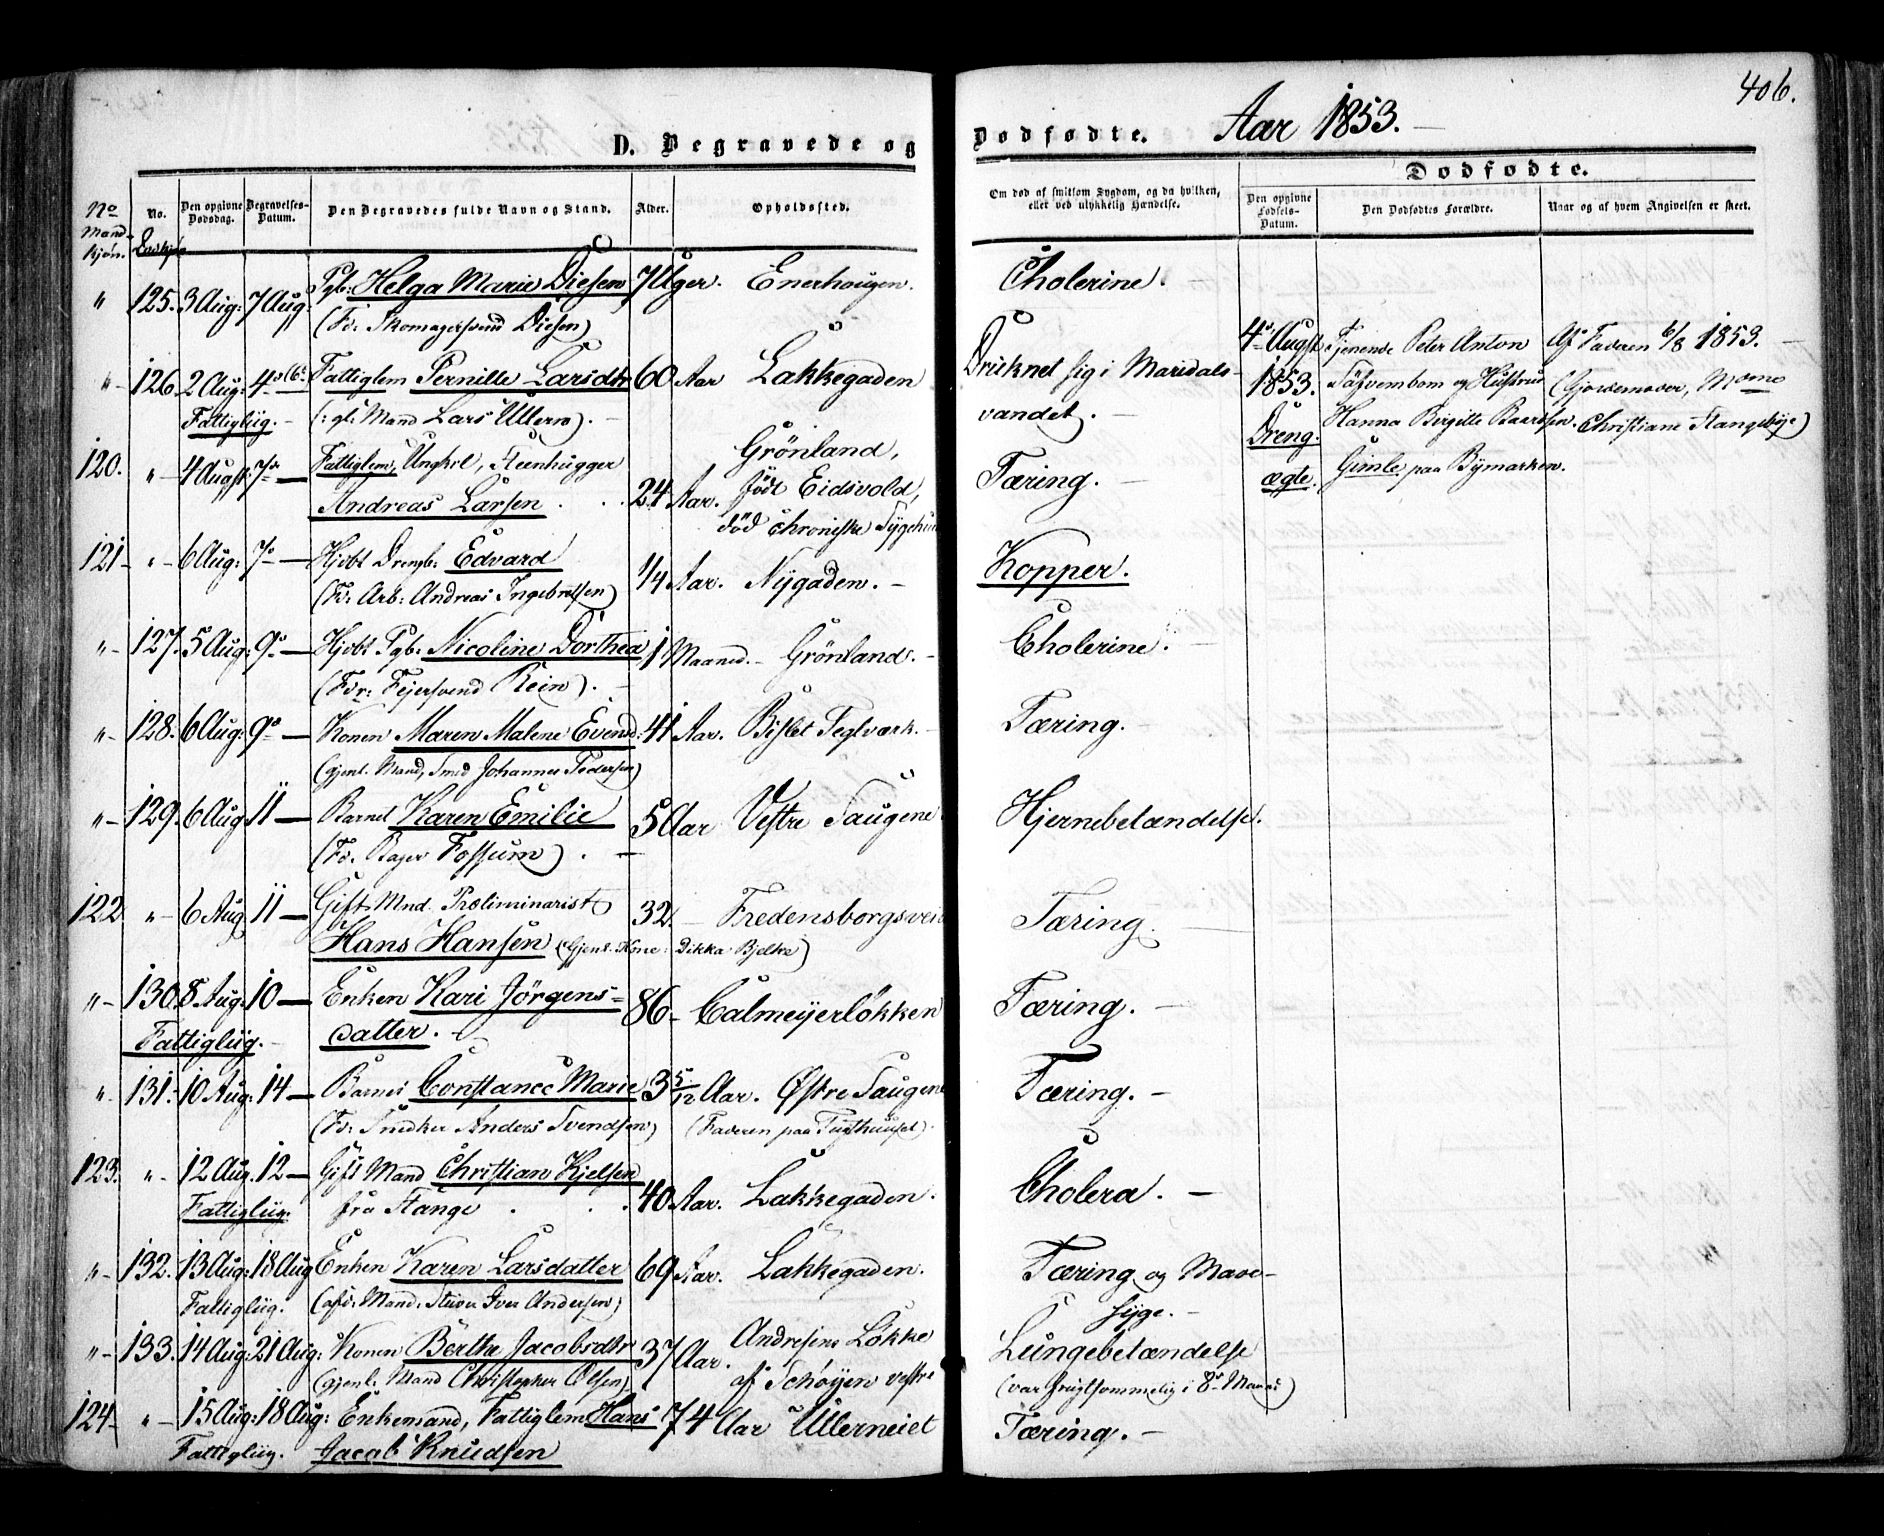 406.
D. Begravede og Dødfødte. Aar 1853.
Dødfødte.
No Mandkjøn.
No. Qvdkjøn
Den opgivne Dødsdag.
Begravelses-Datum.
Den Begravedes fulde Navn og Stand.
Alder.
Opholdssted.
Om død af smitsom Sygdom, og da hvilken, eller ved ulykkelig Hændelse.
Den opgivne Fødsels-Datum.
Den Dødfødtes Forældre.
Naar og af hvem Angivelsen er skeet.
" 125. 3 Aug: 7 Aug: Pgb: Helga Marie Diesen 7 Uger. Enerhougen. Cholerine.
(Fd: Skomagersvend Diesen)
"- 126 2 Aug: 4- Fattiglem Pernille Larsdtr 60 Aar Lakkegaden Druknet sig i Maridals-
Fattigliig. - (: gl: Mand Lars Ullern). - vandet. -
4. Augst 1853. Dreng. ægte.
Tjenende Peter Anton
Säfvembom og Hustrue
Hanna Birgitte Baarsen.
Gimle paa Bymarken.
Af Faderen 6/8 1853. -
(Gjordemoder, Mme
Christiane Stangebye)
120. "- 4 Augst: 7- Fattiglem, Ungkrl, Steenhugger Grönland,
Andreas Larsen . . . 24 Aar. født Eidsvold, Tæring. -
död chroniske Sygehuus
121- "- 6 Aug: 7- Hjdbt Drengb: Edvard 1/4 Aar. Nÿgaden. - Kopper.
(Fd: Arb: Andreas Ingebretsen)
"- 127. 5 Aug: 9- Hjdbt Pgb: Nicoline Dorthea 1 Maaned. - Grönland. - Cholerine. -
(Fdr: Fejersvend Rein). -
"- 128. 6 Aug: 9- Konen Maren Malene Evensd: 41 Aar. Bislet Teglværk. - Tæring. -
(gjenl. Mand, Smed Johannes Pedersen)
"- 129. 6 Aug: 11- Barnet Karen Emilie 5 Aar Vestre Saugene Hjernebetændelse.
(Fd. Bager Fossum) . -
122 "- 6 Aug 11- Gift Mnd. Præliminarist 32. - Fredensborgsvei Tæring.
Hans Hansen (Gjenl. Kone: Dikka Bjelke)
"- 130. 8 Aug: 10- Enken Kari Jörgens= 86- Calmeÿerløkken Tæring. -
Fattigliig. - datter. -
"- 131. 10 Aug: 14- Barnet Constance Marie 3 5/12 Aar. Østre Saugene Tæring. -
(Fd: Snedker Anders Svendsen) (Faderen paa Tugthuuset).
123. "- 12 Aug. 12- Gift Mand Christian Kjelsen 40 Aar. Lakkegaden. Cholera. -
Fattigliig. fra Stange . . .
"- 132. 13 Aug: 18 Aug Enken Karen Larsdatter 69 Aar. Lakkegaden. Tæring og Mave-
Fattigliig. (afd: Mand: Stuver Iver Andersen) syge. -
"- 133. 14 Aug: 21 Aug: Konen Berthe Jacobsdtr 37 Aar. Andresens Løkke Lungebetændelse
(gjenl. Mand Christopher Olsen) af Schøyen vestre (var frugtsommelig i 8- Maaned)
124- "- 15 Aug: 18 Aug: Enkemand, Fattiglem Hans 74 Aar Ullerneiet Tæring. -
Fattigliig. Jacob Knudsen